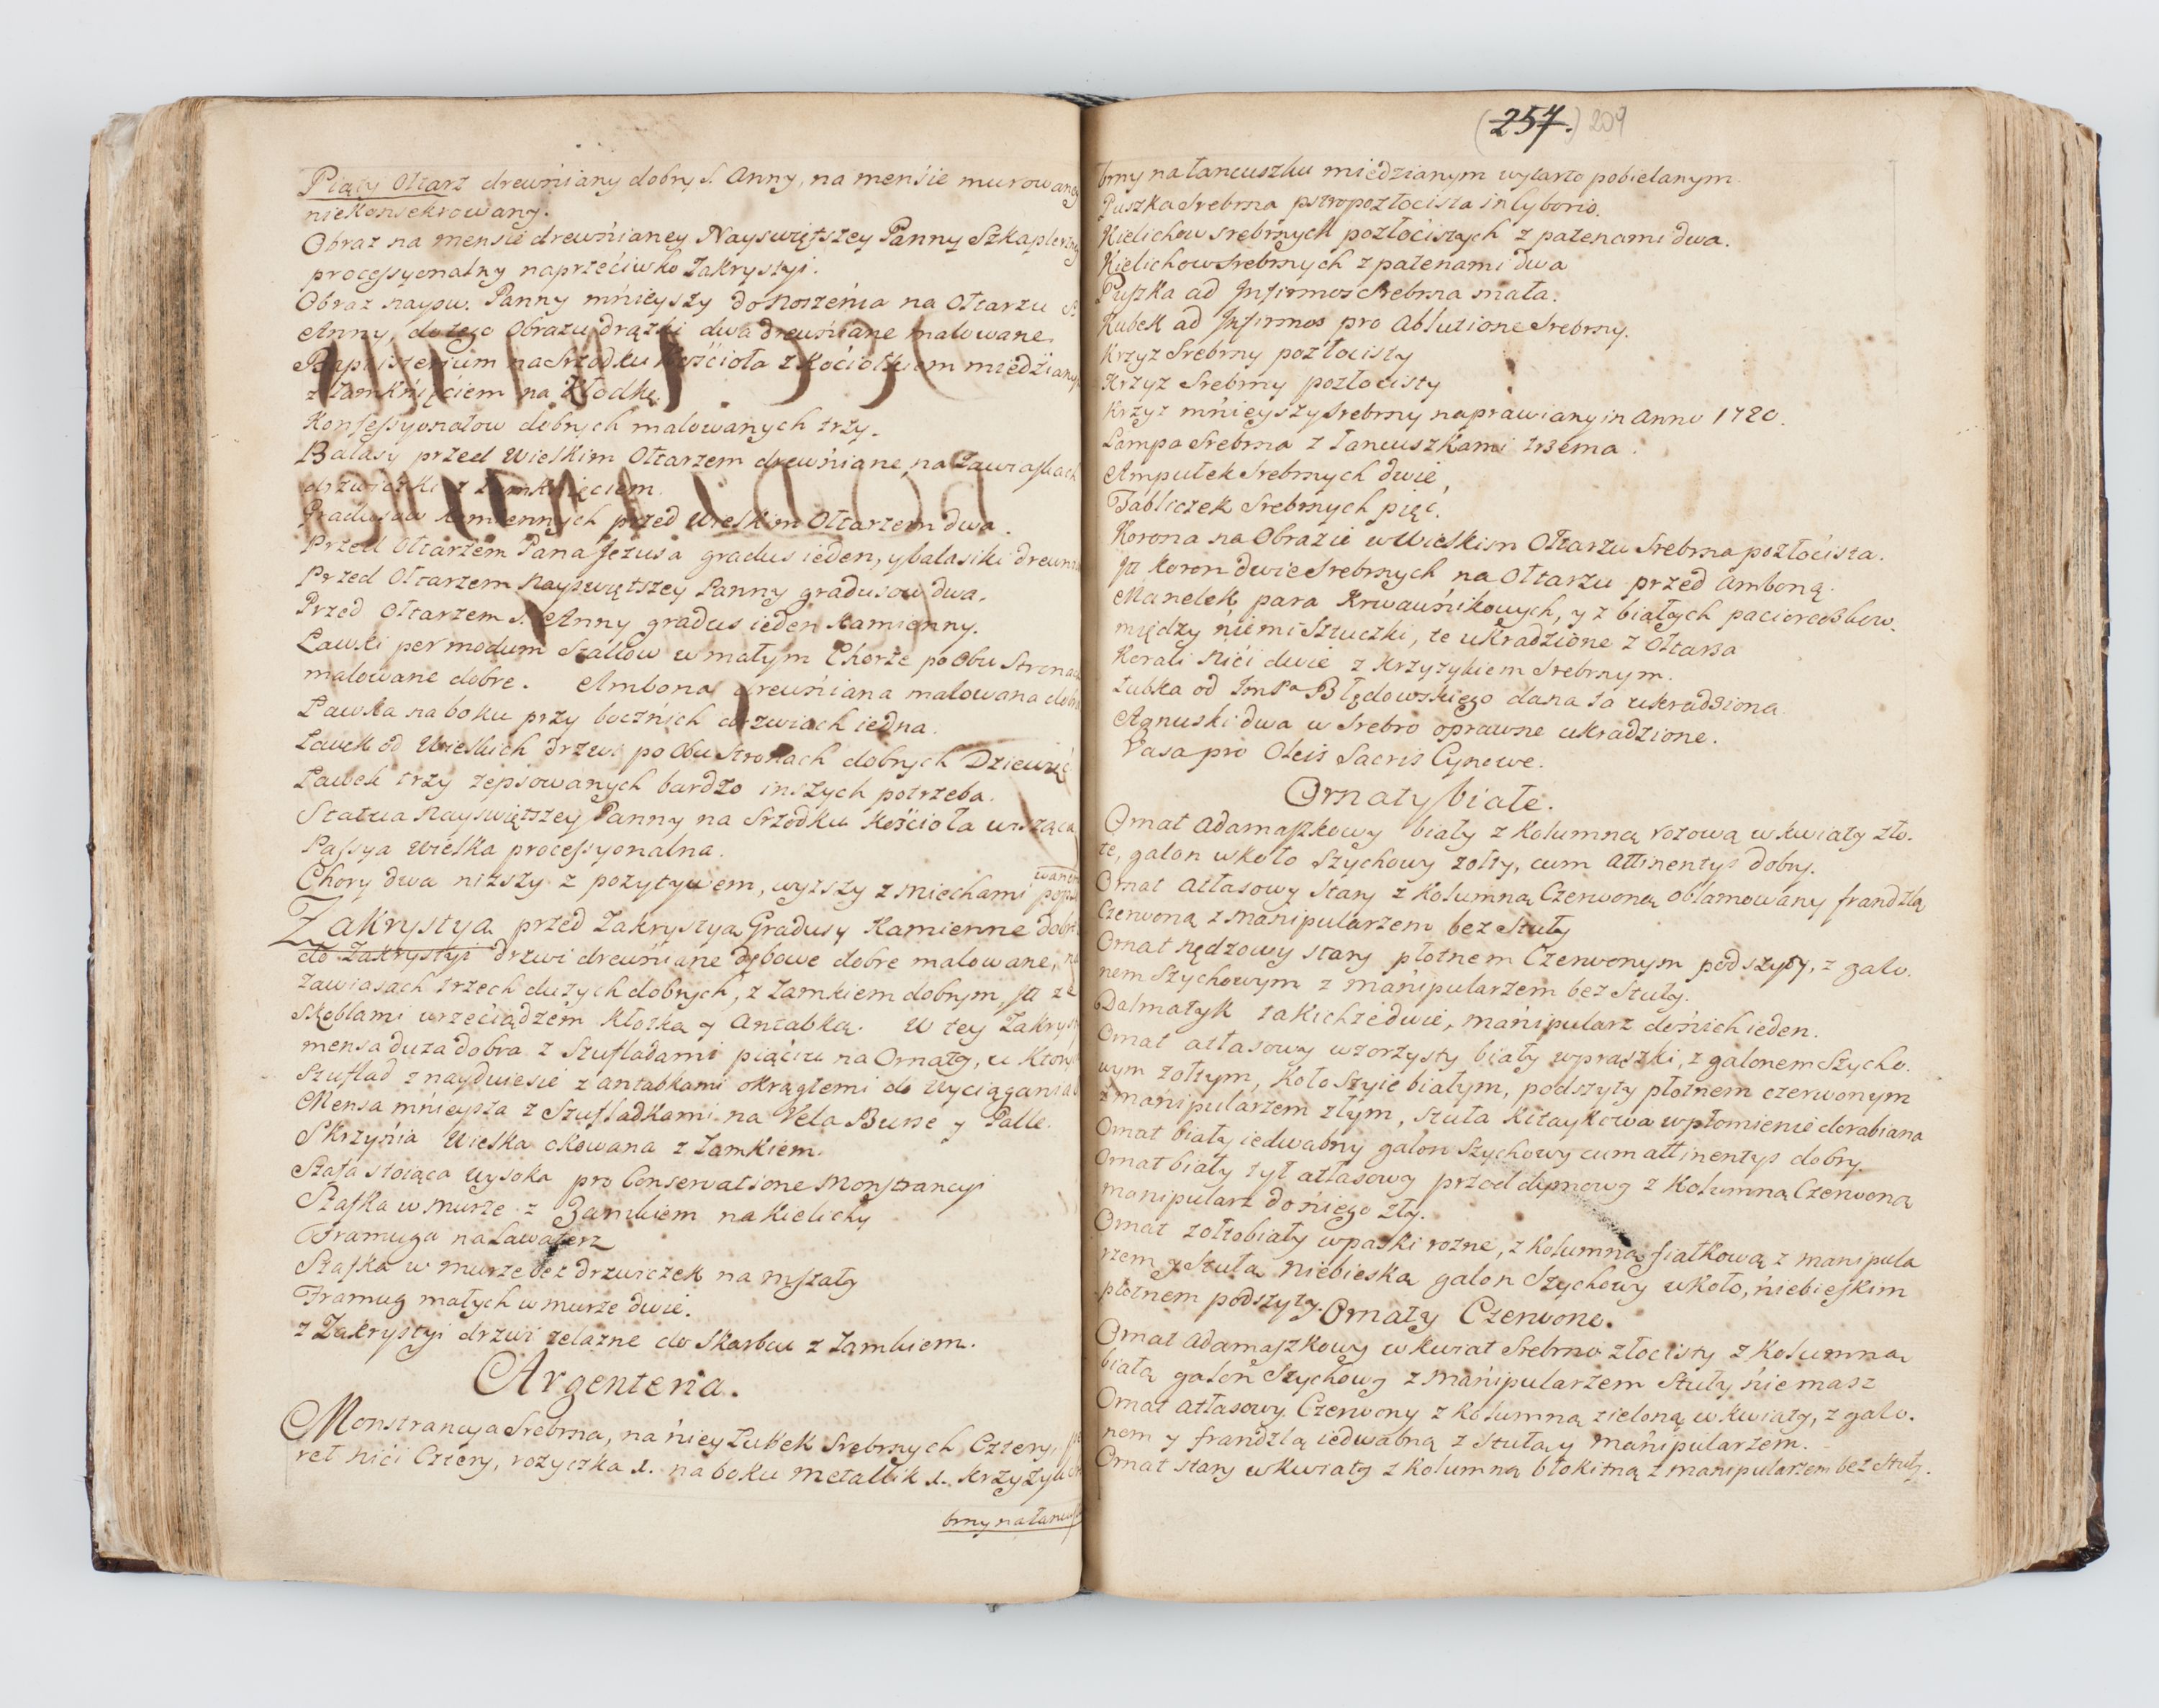 Piąty Ołtarz drewniany dobry S. Anny, na mensie murowaney
niekonsekrowany.
Obraz na mensie drewnianey Nayswiętszey Panny Szkaplerzney
processyonalny naprzeciwko Zakrystyi.
Obraz nayśw. Panny mnieyszy do noszenia na Ołtarzu S.
Anny, do tego Obrazu drążki dwa drewniane malowane.
Baptisterium na Srzodku Kościoła z Kociołkiem miedzianym
z zamknięciem na Kłodkę.
Konfessyonałow dobrych malowanych trzy.
Balasy przed Wielkim Ołtarzem drewniane, na Zawiasach
drzwiczki z zamknięciem.
Gradusow kamiennych przed Wielkim Ołtarzem dwa.
Przed Ołtarzem Pana Jezusa gradus ieden, y balasiki drewniane
Przed Ołtarzem Nayswiętszey Panny gradusow dwa.
Przed Ołtarzem S. Anny gradus ieden Kamienny.
Ławki per modum Stallow w małym Chorze po Obu Stronach
malowane dobre. Ambona drewniana malowana dobra
Ławka na boku przy bocznich drzwiach iedna.
Ławek od Wielkich drzwi po Obu Stronach dobrych Dziewięć
Ławek trzy zepsowanych bardzo inszych potrzeba.
Statua Nayswiętszey Panny na Srzodku Kościoła wisząca
Passya Wielka processyonalna.
Chory dwa niższy z pozytywem, wyższy z miechami
Zakrystya przed Zakrystyą Gradusy Kamienne dobre
do Zakrystyi drzwi drewniane dębowe dobre malowane, na
Zawiasach trzech dużych dobrych, z Zamkiem dobrym, ze
Skoblami wrzeciądzem Kłotka y Antabką. W tey Zakrystyi
mensa duża dobra z Szufladami piąciu na Ornaty, u Ktorych
Szuflad znayduiesie z antabkami okrągłemi do Wyciągania
Mensa mnieysza z Szufladkami na Vela Burse y Palle.
Skrzynia Wielka okowana z Zamkiem.
Szafa stoiąca Wysoka pro Conservatione Monstrancyi
Szafka w murze z Zamkiem na Kielichy
Framuga na Lawaterz
Szafka w murze bez drzwiczek na mszały
Framug małych w murze dwie.
z Zakrystyi drzwi żelazne do Skarbcu z Zamkiem.
Argenteria.
Monstrancya Srebrna, na niey Lubek Srebrnych Cztery,
reł nici Cztery, rożyczka 1. na boku metallik 1. krzyżyk
brny na łancuszku
(257.) 209
brny na łancuszku miedzianym wytarto pobielanym.
Puszka Srebrna pstropozłocista in Cyborio.
Kielichow srebrnych pozłocistych z patenami dwa.
Kielichow Srebrnych z patenami dwa
Puszka ad Infirmos Srebrna mała.
Kubek ad Infirmos pro Ablutione Srebrny.
Krzyz Srebrny pozłocisty
Krzyz Srebrny pozłocisty
Krzyz mnieyszy Srebrny naprawiany in Anno 1720.
Lampa Srebrna z łancuszkami trzema.
Ampułek Srebrnych dwie,
Tabliczek Srebrnych pięć.
Korona na Obrazie w Wielkim Ołtarzu Srebrna pozłocista.
Koron dwie Srebrnych na Ołtarzu przed Amboną.
Manelek para Krwawnikowych, y z białych paciorecżkow
między niemi Sztuczki, te ukradzione z Ołtarza
Korali nici dwie z Krzyżykiem Srebrnym.
Lubka od Błędowskiego dana ta ukradziona
Agnuski dwa w Srebro oprawne ukradzione.
Vasa pro Oleis Sacris Cynowe.
Ornaty białe.
Ornat Adamaszkowy biały z Kolumną rożową w kwiaty zło-
te, galon wkoło Szychowy zołty, cum attinentys dobry.
Ornat Atłasowy Stary z Kolumną Czerwoną oblamowany frandzlą
Czerwoną z manipularzem bez Stuły
Ornat nędzowy stary płotnem Czerwonym podszyty, z galo-
nem Szychowym z manipularzem bez Stuły.
Dalmatyk takichże dwie, manipularz do nich ieden.
Ornat atłasowy wzorzysty biały wprąszki, z galonem Szycho-
wym zołtym, koło Szyie białym, podszyty płotnem czerwonym
z manipularzem złym, stuła kitaykowa wpłomienie dorabiana
Ornat biały iedwabny galon Szychowy cum attinentys dobry.
Ornat biały tył atłasowy przod dymowy z Kolumną Czerwoną
manipularz do niego zły.
Ornat żołtobiały wpaski rożne, z Kolumną fiałkową z manipula
rzem y Stułą niebieską galon Szychowy wkoło, niebieskim
płotnem podszyty. Ornaty Czerwone.
Ornat Adamaszkowy w kwiat Srebrno złocisty z Kolumną
białą galon Szychowy z manipularzem Stuły nie masz
Ornat Atłasowy Czerwony z Kolumną zieloną w kwiaty, z galo-
nem y frandzlą iedwabną z stułą y manipularzem.
Ornat stary w kwiaty z Kolumną błokitną z manipularzem bez Stuły.